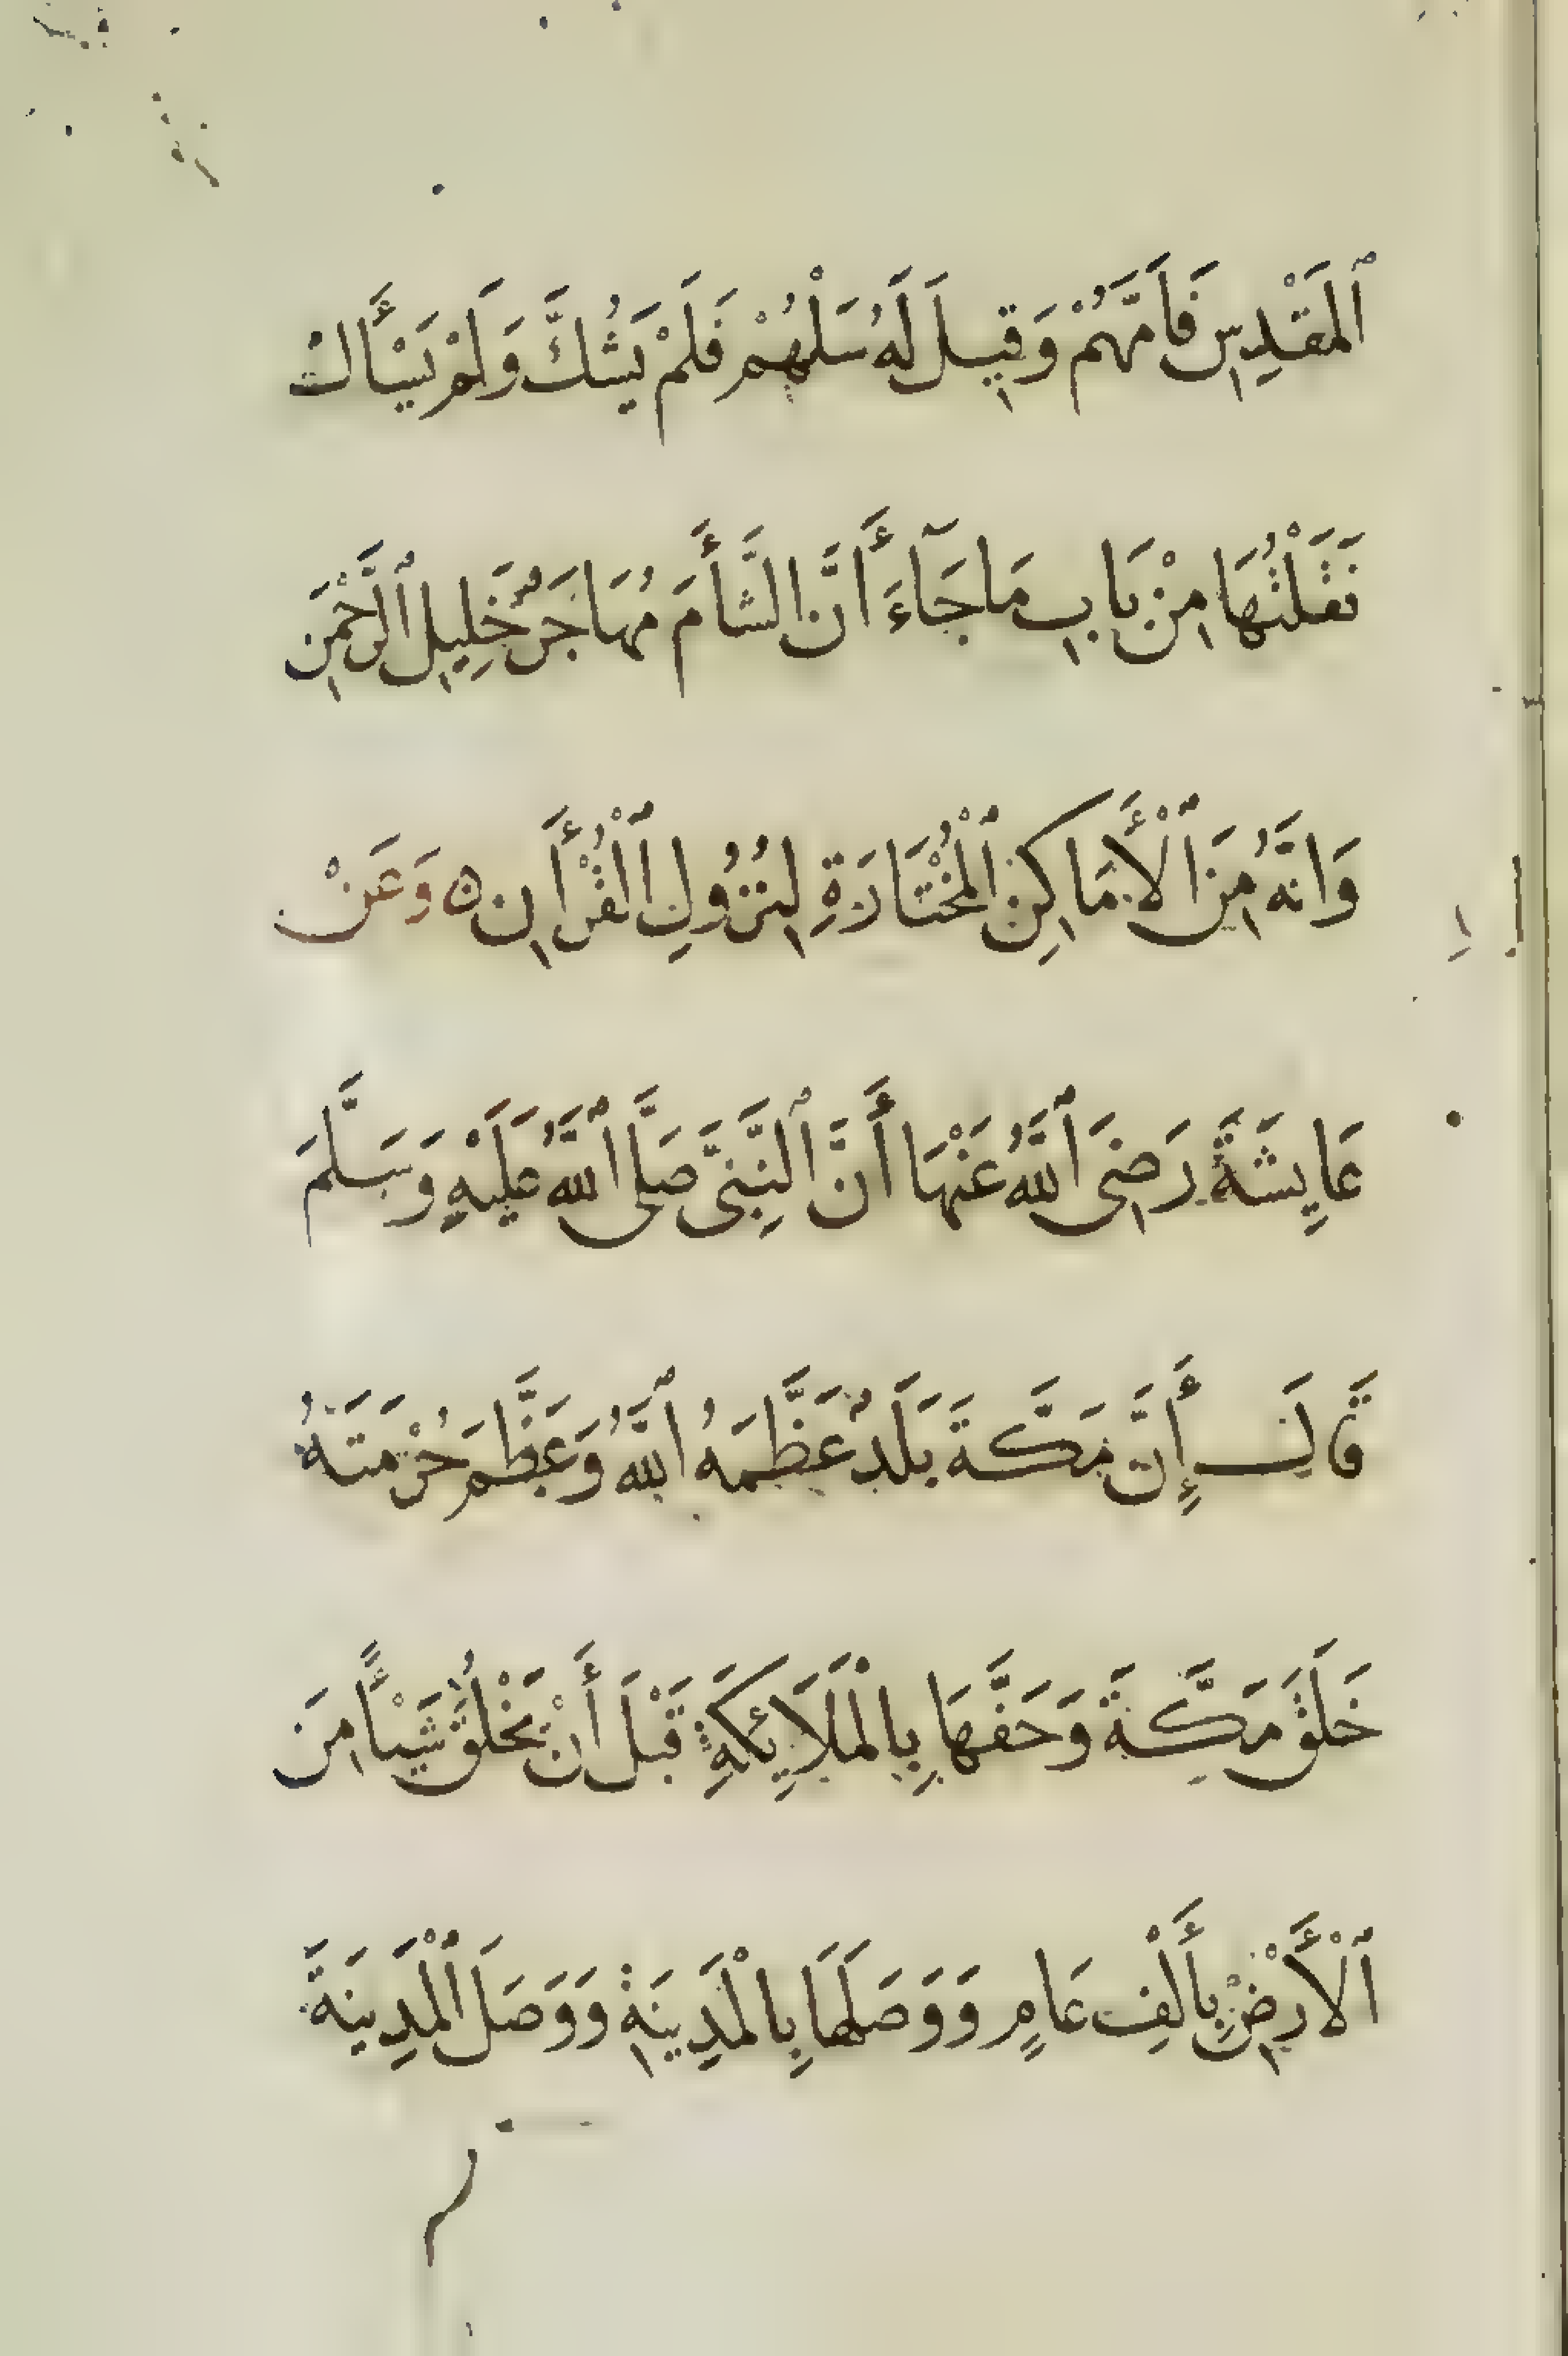 ٱلْمَقْدِسِ فَأَمَّهُمْ وَقِيلَ لَهُ سَلْهُمْ فَلَمْ يَشُكَّ وَلَمْ يَسْأَلْ
نَقَلْتُهَا مِنْ بَابِ مَا جَآءَ أَنَّ الشَّأَمَ مُهَاجَرُ خَلِيلِ ٱلرَّحْمٰنِ
وَانَّهُ مِنَ ٱلْأَمَاكِنِ ٱلْمُخْتَارَةِ لِنُزُولِ ٱلْقُرْأَانِ ه وَعَنْ
عَايِشَةَ رَضِىَ ٱللَّهُ عَنْهَا أَنَّ ٱلنَّبِىَّ صَلَّى ٱللَّهُ عَلَيْهِ وَسَلَّمَ
قَالَ إِنَّ مَكَّةَ بَلَدٌ عَظَّمَهُ ٱللَّهُ وَعَظَّمَ حُرْمَتَهُ
خَلَقَ مَكَّةَ وَحَفَّهَا بِالْمَلَايِكَةِ قَبْلَ أَنْ يَخْلُقَ شَيْأً مِنَ
ٱلْأَرْضِ بِأَلْفِ عَامٍ وَوَصَلَهَا بِالْمَدِينَةِ وَوَصَلَ ٱلْمَدِينَةَ